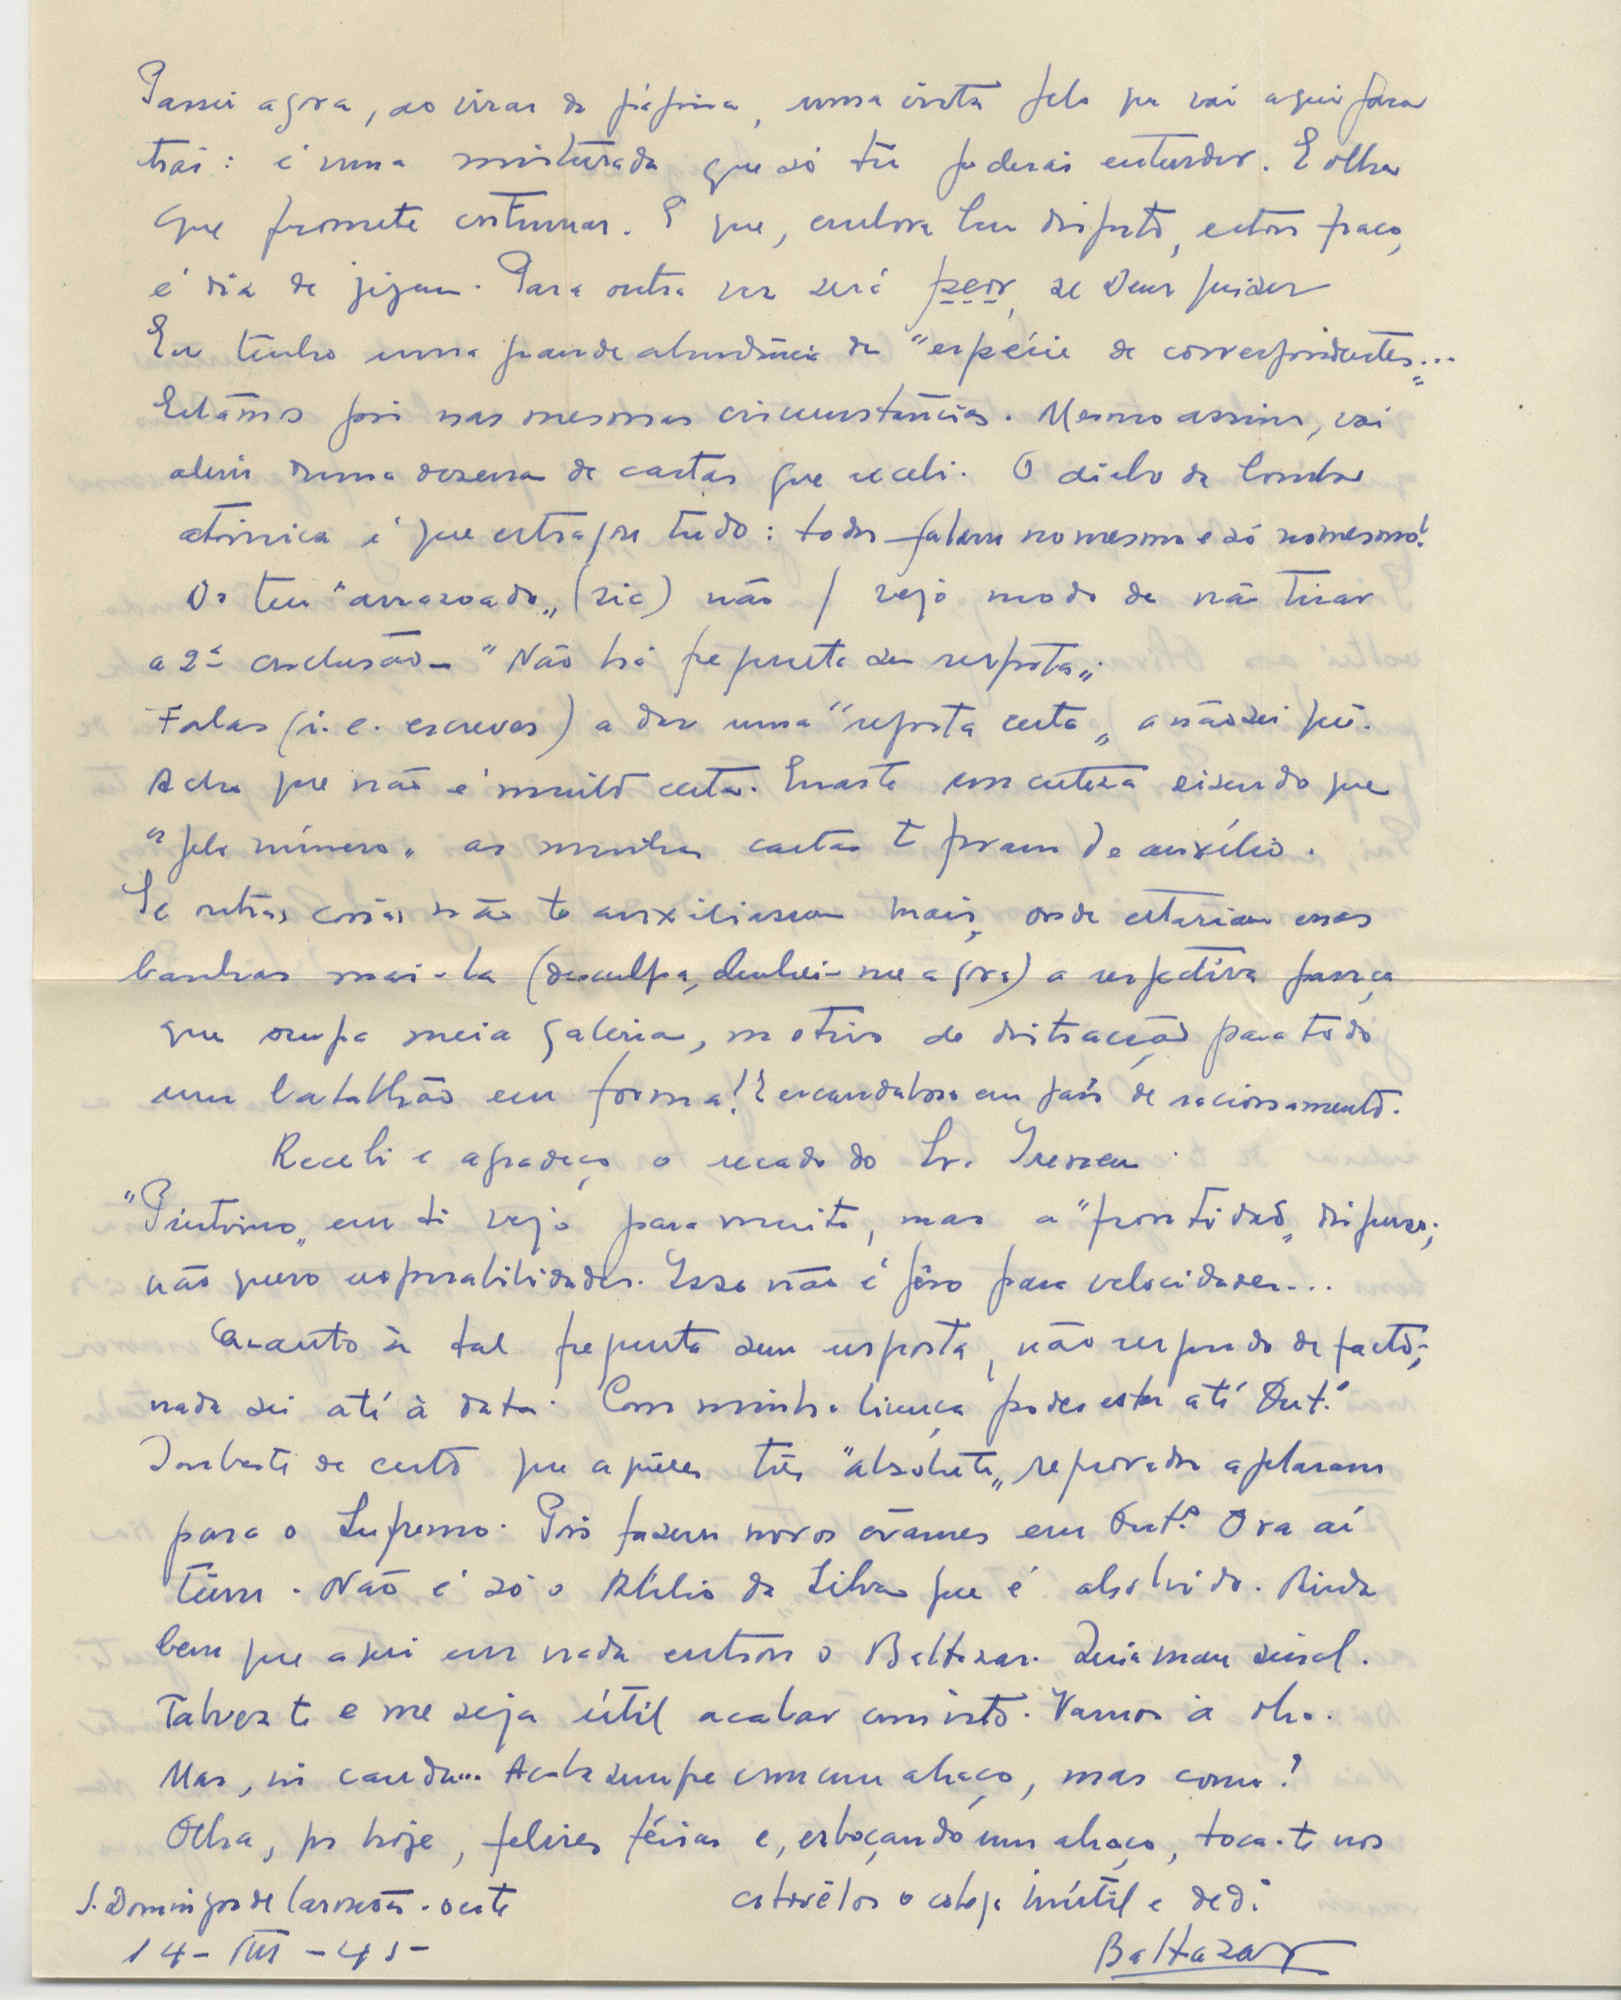 Passei agora, ao virar da página, uma vista pelo que vai aqui para
trás: é uma misturada que só tu poderás entender. E olha
que promete continuar. É que, embora bem disposto, estou fraco,
é dia de jejum. Para outra vez será peor, se Deus quizer
Eu tenho uma grande abundância de "espécie de correspondentes"...
Estâmos pois nas mesmas circunstâncias. Mesmo assim, vai
além duma dezena de cartas que recebi. O diabo da bomba
atómica é que estragou tudo: todos falam no mesmo e só no mesmo!
Do teu "arrazoado" (sic) não / vejo modo de não tirar
a 2ª conclusão - "Não há pergunta sem resposta".
Falas (i.e. escreves) a dar uma "resposta certa" a não sei quê.
Acho que não é muito certa. Erraste com certeza dizendo que
"pelo número" as minhas cartas te foram de auxílio.
Se outras coisas não te auxiliassem mais, onde estariam essas
banhas mai-la (desculpa, lembrei-me agora) a respectiva pança
que ocupa meia galeria, motivo de distracção para todo
um batalhão em forma! É escandaloso em país de racionamento.
Recebi e agradeço o recado do Sr.
em ti vejo para muito, mas a "prontidão" dispenso;
não quero responsabilidades. Isso não é para velocidades...
Quanto à tal pergunta sem resposta, não respondo de facto;
nada sei até à data. Com minha licença podes estar até Out.º
de certo que aqueles três "absolute" reprovados apelaram
para o Supremo. Pois fazem novos exames em Out.º Ora aí
têm. Não é só o Atílio da Silva que é absolvido. Ainda
bem que aqui em nada entrou o Baltazar. Seria mau sinal.
Talvez te e me seja útil acabar com isto. Vamos a
Mas, in cauda... Acaba sempre com um abraço, mas como?
Olha, por hoje, felizes férias e, esboçando um abraço, toca-te nos
cotovêlos o colega inútil e ded.º
S. Domingos de Carmões - oeste
14 - VIII - 45 -
Baltazar